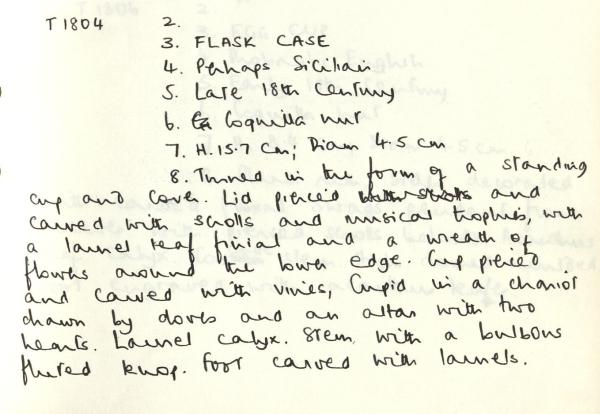 T 1804 2.
3. FLASK CASE
4. Perhaps Sicilian
5. Late 18th Century
6. Coquilla nut
7. H. 15.7 cm; Diam 4.5 cm
8. Turned in the form of a standing
cup and cover. Lid pierced and
carved with scrolls and musical trophies, with
a laurel leaf finial and a wreath of
flowers around the lower edge. Cup pierced
and carved with vines, Cupid in a chariot
drawn by doves and an altar with two
hearts. Laurel calyx. Stem with a bulbous
fluted knop. Foot carved with laurels.